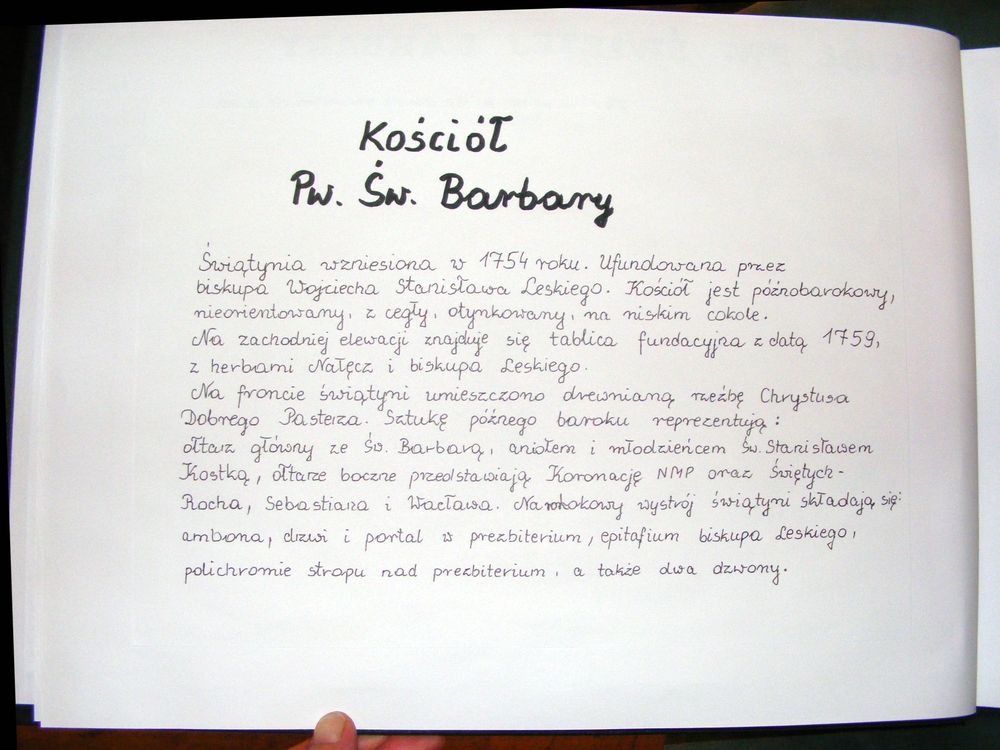 Kościół
Pw. Św. Barbary
Świątynia wzniesiona w 1754 roku. Ufundowana przez
biskupa Wojciecha Stanisława Leskiego. Kościół jest późnobarokowy,
nieorientowany, z cegły, otynkowany, na niskim cokole.
Na zachodniej elewacji znajduje się tablica fundacyjna z datą 1759,
z herbami Nałęcz i biskupa Leskiego.
Na froncie świątyni umieszczono drewnianą rzeźbę Chrystusa
Dobrego Pasterza. Sztukę późnego baroku reprezentują:
ołtarz główny ze Św. Barbarą, aniołem i młodzieńcem Św. Stanisławem
Kostką, ołtarze boczne przedstawiają Koronację NMP oraz Świętych-
Rocha, Sebastiana i Wacława. Na rokokowy wystrój świątyni składają się:
ambona, drzwi i portal w prezbiterium, epitafium biskupa Leskiego,
polichromie stropu nad prezbiterium, a także dwa dzwony.